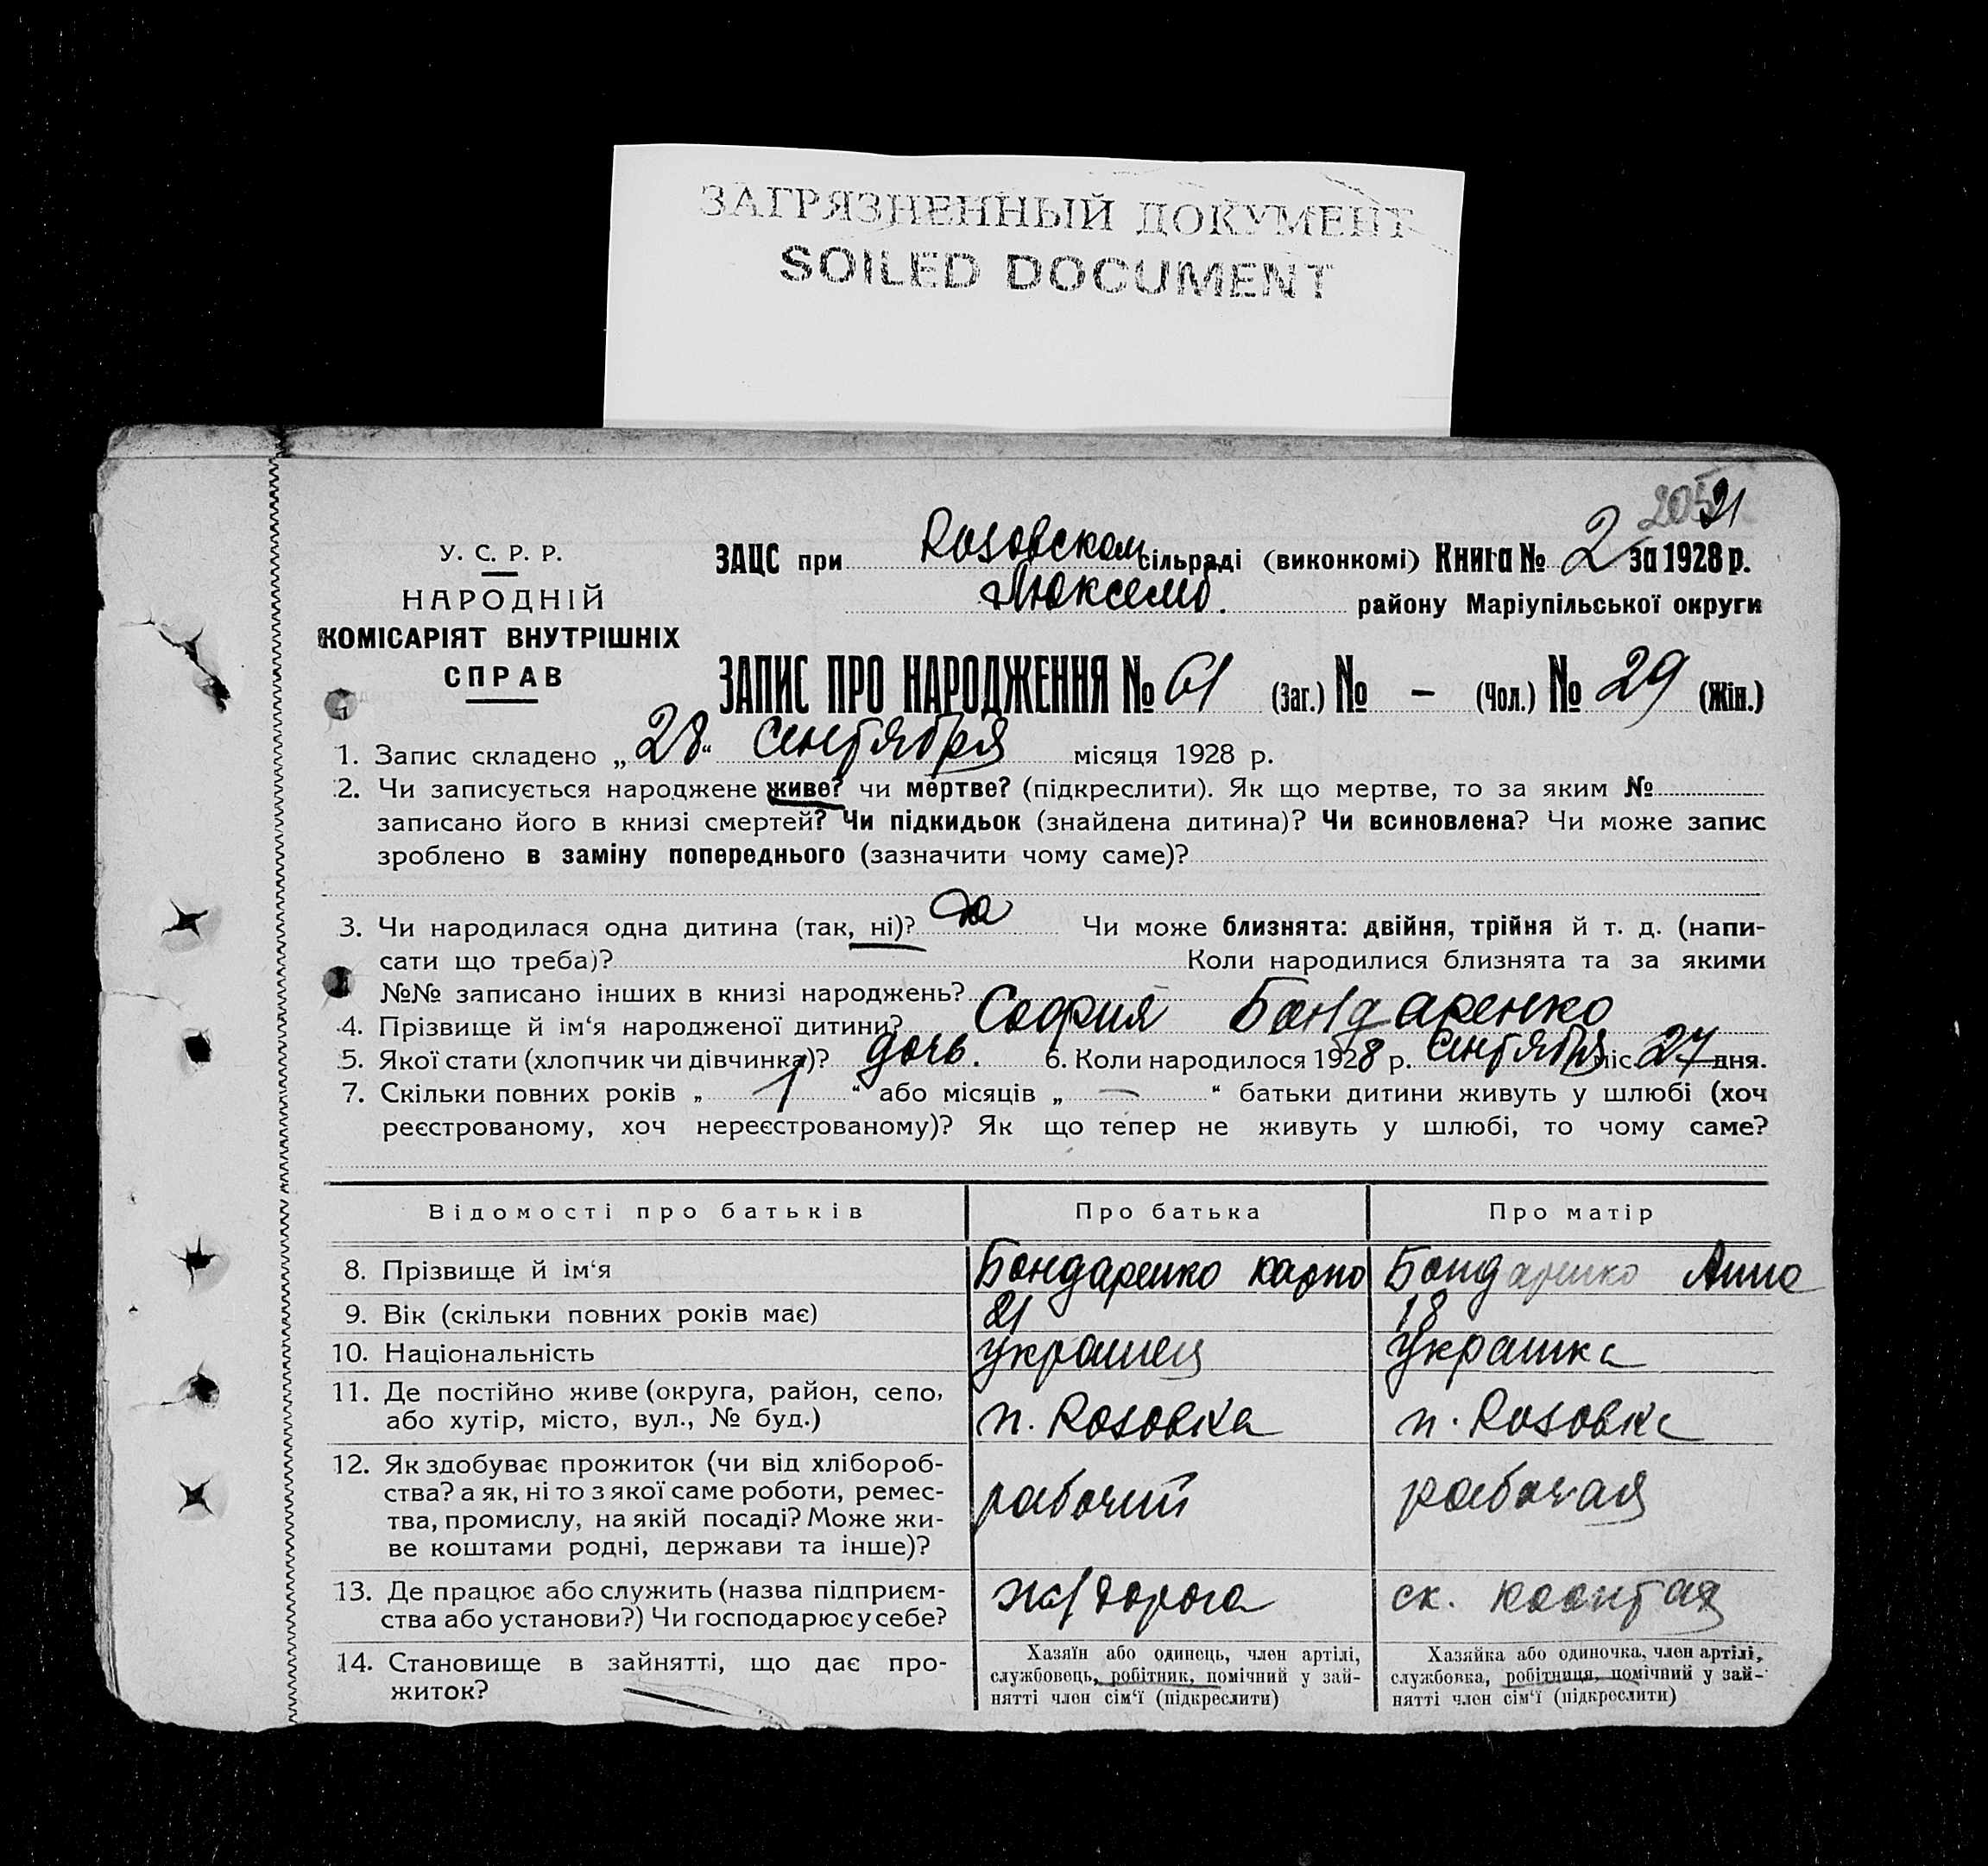 ЗАГРЯЗНЕННЫЙ ДОКУМЕНТ
SOILED DOCUMENT
У. С. Р. Р.
НАРОДНІЙ
КОМІСАРІЯТ ВНУТРІШНІХ
СПРАВ
ЗАЦС при Rosовском сільраді (виконкомі) Книга № 2 за 1928 р.
Люксемб. району Маріупільської округи
ЗАПИС ПРО НАРОДЖЕННЯ № 61 (Заг.) № – (Чол.) № 29 (Жін.)
1. Запис складено „28“ сентября місяця 1928 р.
2. Чи записується народжене живе? чи мертве? (підкреслити). Як що мертве, то за яким №
записано його в книзі смертей? Чи підкидьок (знайдена дитина)? Чи всиновлена? Чи може запис
зроблено в заміну попереднього (зазначити чому саме)?
3. Чи народилася одна дитина (так, ні)? да Чи може близнята: двійня, трійня й т. д. (напи-
сати що треба)? Коли народилися близнята та за якими
№№ записано інших в книзі народжень? –
4. Прізвище й ім‘я народженої дитини? София Бондаренко
5. Якої стати (хлопчик чи дівчинка)? дочь. 6. Коли народилося 1928 р. сентября міс. 27 дня.
7. Скільки повних років „ 1 “ або місяців „ – “ батьки дитини живуть у шлюбі (хоч
реєстрованому, хоч нереєстрованому)? Як що тепер не живуть у шлюбі, то чому саме?
Відомості про батьків Про батька Про матір
8. Прізвище й ім‘я Бондаренко Карпо Бондаренко Анна
9. Вік (скільки повних років має) 21 18
10. Національність украинец украинка
11. Де постійно живе (округа, район, село,
або хутір, місто, вул., № буд.) п. Rosовка п. Rosовка
12. Як здобуває прожиток (чи від хлібороб-
ства? а як, ні то з якої саме роботи, ремес-
тва, промислу, на якій посаді? Може жи-
ве коштами родні, держави та інше)? рабочий рабочая
13. Де працює або служить (назва підприєм-
ства або установи?) Чи господарює у себе? ж/дорога ск.
14. Становище в зайнятті, що дає про-
житок?
Хазяїн або одинець, член артілі,
службовець, робітник, помічний у зай-
нятті член сім‘ї (підкреслити)
Хазяйка або одиночка, член артілі,
службовка, робітниця, помічний у зай-
нятті член сім‘ї (підкреслити)